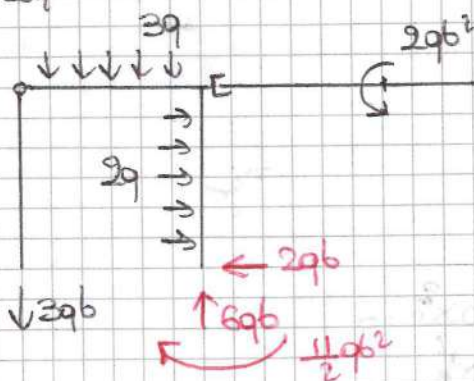 3q
2qb²
2q
2qb
3qb
6qb
11/2 qb²